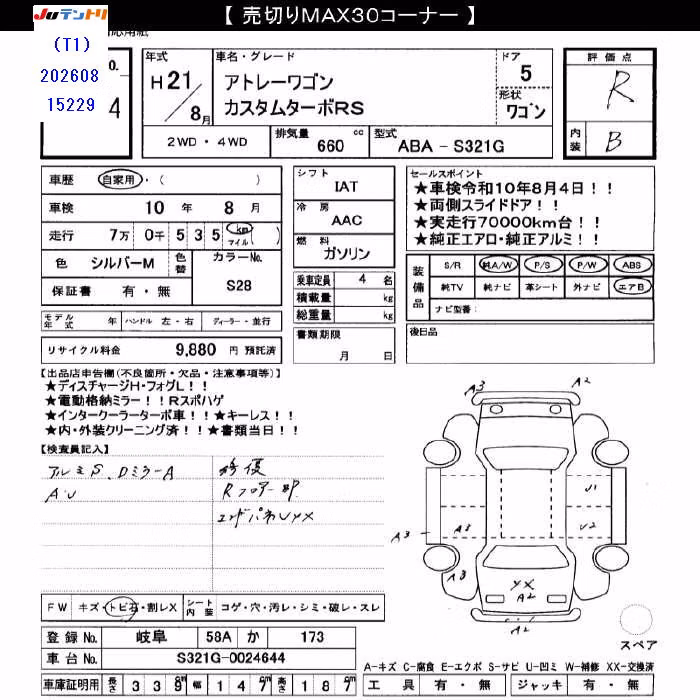 【 売切りMAX30コーナー 】
JUテントリ
(T1)
202608
15229
応用紙
0.
4
年式
H21/8月
車名・グレード
アトレーワゴン
カスタムターボRS
ドア
5
形状
ワゴン
評価点
R
内装
B
2WD・4WD
排気量
660 cc
型式
ABA - S321G
車歴 自家用・( )
車検 10 年 8 月
走行 7万 0千 5 3 5 km マイル ( )
色 シルバーM 色替 カラーNo. S28
保証書 有・無
モデル年式 年 ハンドル 左・右 ディーラー・並行
リサイクル料金 9,880 円 預託済
シフト
IAT
冷房
AAC
燃料
ガソリン
乗車定員 4 名
積載量 kg
総重量 kg
書類期限
月 日
セールスポイント
★車検令和10年8月4日!!
★両側スライドドア!!
★実走行70000km台!!
★純正エアロ・純正アルミ!!
装備品
S/R 純A/W P/S P/W ABS
純TV 純ナビ 革シート 外ナビ エアB
ナビ型番:
後日品
【出品店申告欄(不良箇所・欠品・注意事項等)】
★ディスチャージH・フォグL!!
★電動格納ミラー!!Rスポハゲ
★インタークーラーターボ車!!★キーレス!!
★内・外装クリーニング済!!★書類当日!!
【検査員記入】
アルミS、Dミラ-A
A・U
修復
Rフロアー部
エンドパネUYX
A3
A2
U1
A3
A3
U2
A3
YX
A2
A2
スペア
FW キズ・トビ石・割レX シート内装 コゲ・穴・汚レ・シミ・破レ・スレ
登録No. 岐阜 58A か 173
車台No. S321G-0024644
車庫証明用 長さ 339 幅 147 高さ 187
A-キズ C-腐食 E-エクボ S-サビ U-凹ミ W-補修 XX-交換済
工具 有・無 ジャッキ 有・無